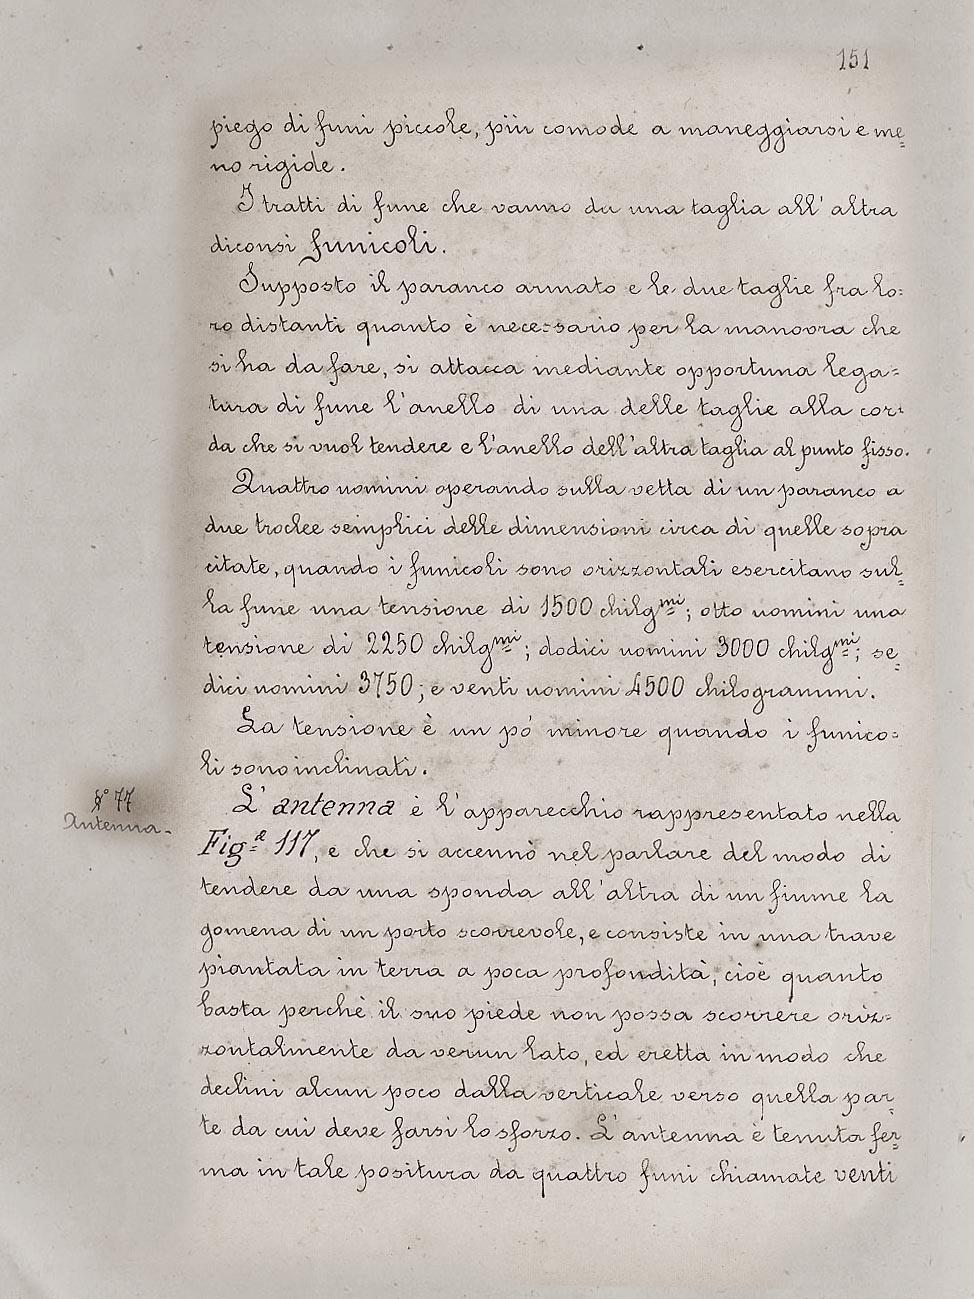 151
piego di funi piccole, più comode a maneggiarsi e me=
no rigide.
I tratti di fune che vanno da una taglia all' altra
diconsi funicoli.
Supposto il paranco armato e le due taglie fra lo=
ro distanti quanto è necessario per la manovra che
si ha da fare, si attacca mediante opportuna lega=
tura di fune l'anello di una delle taglie alla cor=
da che si vuol tendere e l'anello dell'altra taglia al punto fisso.
Quattro uomini operando sulla vetta di un paranco a
due troclee semplici delle dimensioni circa di quelle sopra
citate, quando i funicoli sono orizzontali esercitano sul=
la fune una tensione di 1500 chilg.mi; otto uomini una
tensione di 2250 chilg.mi; dodici uomini 3000 chilg.mi; se=
dici uomini 3750; e venti uomini 4500 chilogrammi.
La tensione è un pò minore quando i funico=
li sono inclinati.
§° 77
Antenna-
L' antenna è l'apparecchio rappresentato nella
Fig.a 117, e che si accennò nel parlare del modo di
tendere da una sponda all'altra di un fiume la
gomena di un porto scorrevole, e consiste in una trave
piantata in terra a poca profondità, cioè quanto
basta perchè il suo piede non possa scorrere oriz=
zontalmente da verun lato, ed eretta in modo che
declini alcun poco dalla verticale verso quella par=
te da cui deve farsi lo sforzo. L'antenna è tenuta fer=
ma in tale positura da quattro funi chiamate venti